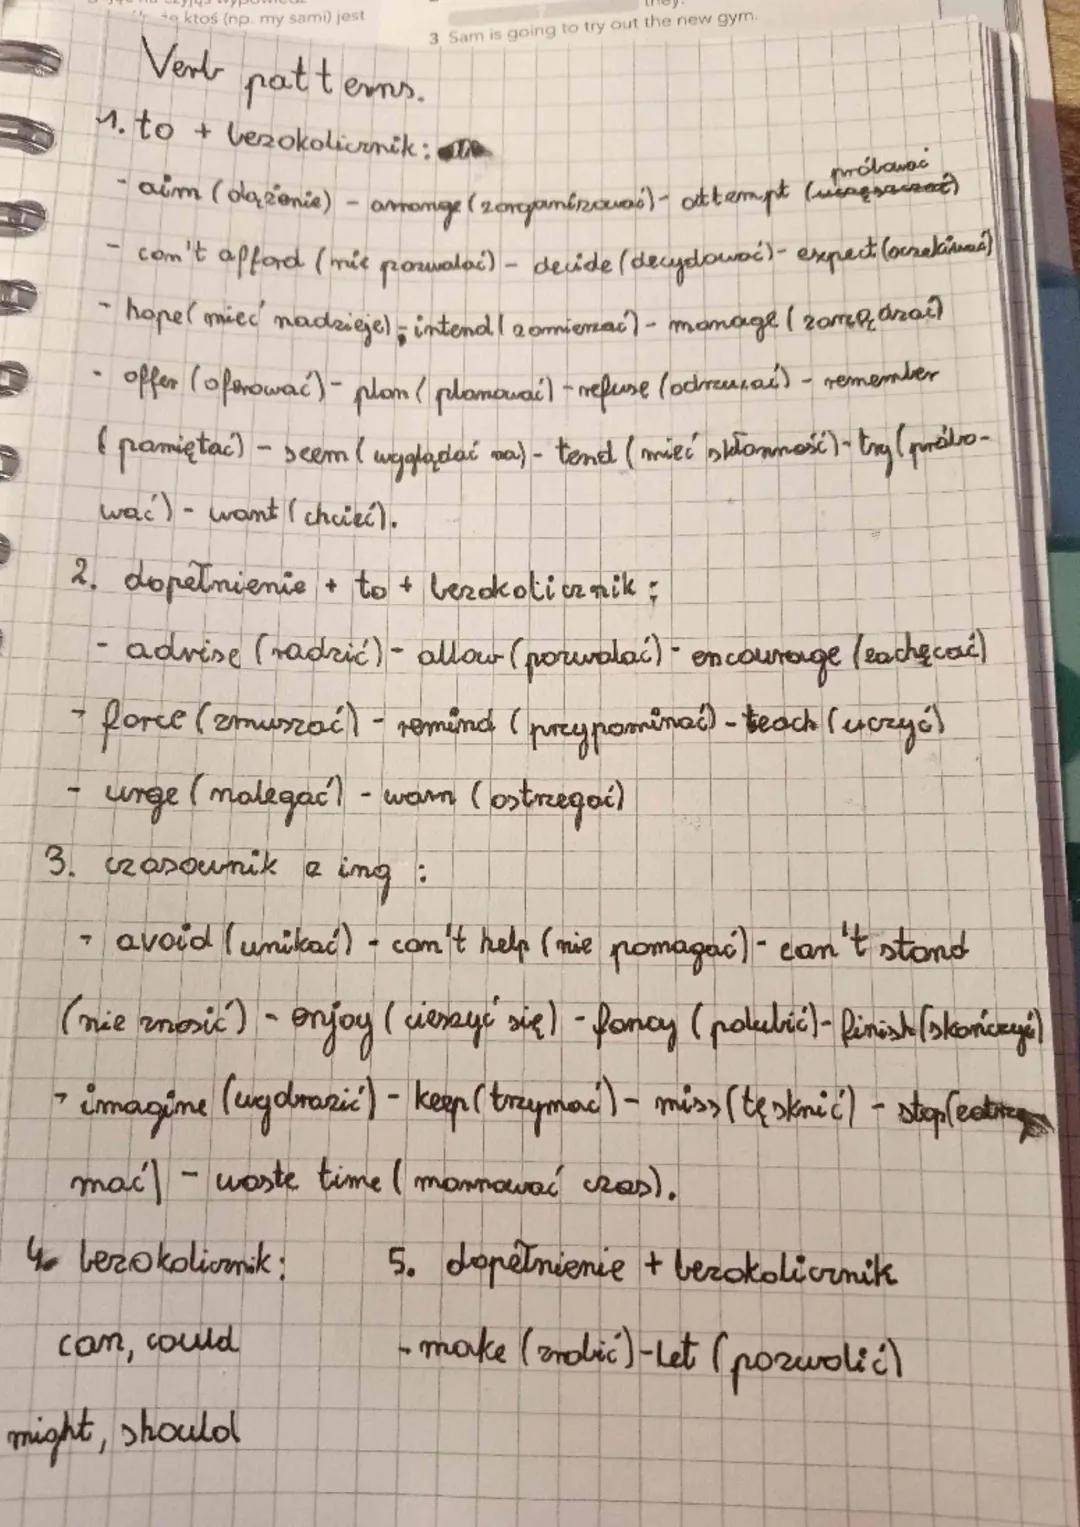 ktoś (np. my sami) jest
3 Sam is going to try out the new gym.
Verb patterns.
1. to + bezokolicznik:
- aim (dążenie) - arrange (zorganizować) - attempt (próbować)
- can't afford (nie pozwalać) - decide (decydować) - expect (oczekiwać)
- hope (mieć nadzieje) - intend (zamierzać) - manage (zarządzać)
- offer (oferować) - plan (planować) - refuse (odrzucać) - remember
(pamiętać) - seem (wyglądać na) - tend (mieć skłonność) - try (próbo-
wać) - want (chcieć).
2. dopełnienie + to + bezokolicznik:
- advise (radzić) - allow (pozwalać) - encourage (zachęcać)
- force (zmuszać) - remind (przypominać) - teach (uczyć)
- urge (nalegać) - warn (ostrzegać)
3. czasownik z ing:
- avoid (unikać) - can't help (nie pomagać) - can't stand
(nie znosić) - enjoy (cieszyć się) - fancy (polubić) - finish (skończyć)
- imagine (wyobrazić) - keep (trzymać) - miss (tęsknić) - stop (zatrzy
mać) - waste time (marnować czas).
4. bezokolicznik: 5. dopełnienie + bezokolicznik
can, could - make (zrobić) - let (pozwolić)
might, should